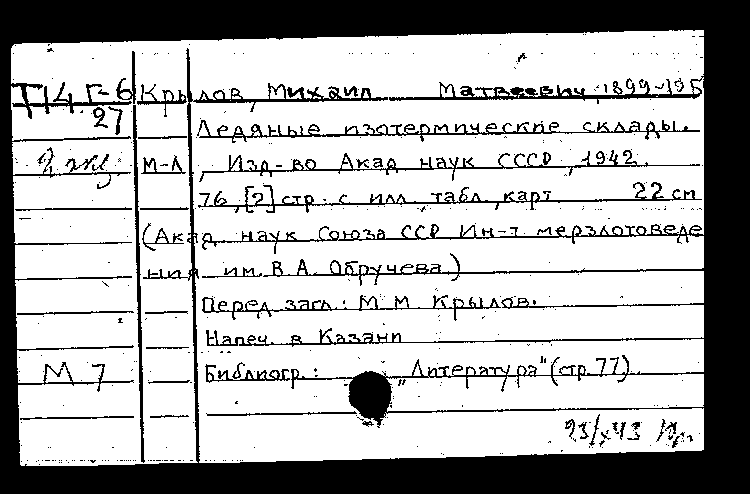 Т14 Г-6 Крылов, Михаил Матвеевич, 1899-195
27 Ледяные изотермические склады.
2 экз. М-Л, Изд-во Акад наук СССР, 1942.
76, [2] стр. с илл, табл, карт 22 см
(Акад. наук Союза ССР Ин-т мерзлотоведе
ния им. В.А. Обручева.)
Перед загл.: М М Крылов.
Напеч. в Казани
М 7 Библиогр.: „Литература" (стр. 77).
23/x43